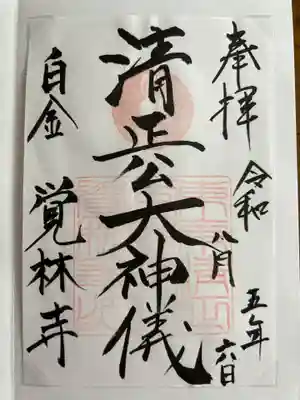 奉拝
令和五年
八月六日
清正公大神儀
白金
覚林寺